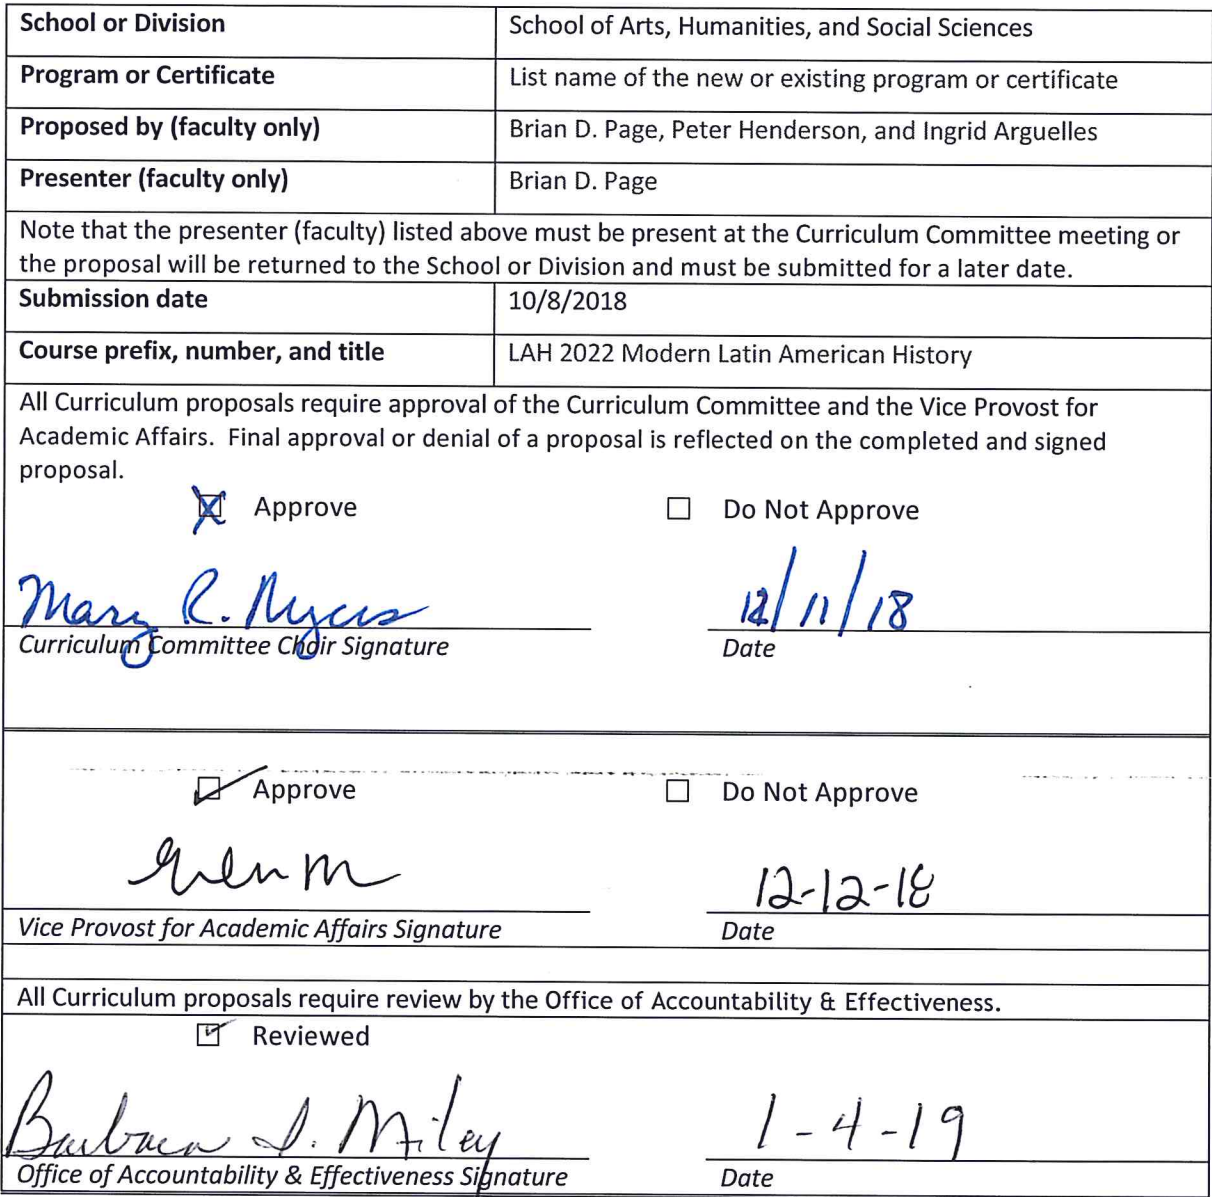 School or Division School of Arts, Humanities, and Social Sciences
Program or Certificate List name of the new or existing program or certificate
Proposed by (faculty only) Brian D. Page, Peter Henderson, and Ingrid Arguelles
Presenter (faculty only) Brian D. Page
Note that the presenter (faculty) listed above must be present at the Curriculum Committee meeting or
the proposal will be returned to the School or Division and must be submitted for a later date.
Submission date 10/8/2018
Course prefix, number, and title LAH 2022 Modern Latin American History
All Curriculum proposals require approval of the Curriculum Committee and the Vice Provost for
Academic Affairs. Final approval or denial of a proposal is reflected on the completed and signed
proposal.
Approve Do Not Approve
Mary R. Myers 12/11/18
Curriculum Committee Chair Signature Date
Approve Do Not Approve
12-12-18
Vice Provost for Academic Affairs Signature Date
All Curriculum proposals require review by the Office of Accountability & Effectiveness.
Reviewed
Barbara J. Miley 1-4-19
Office of Accountability & Effectiveness Signature Date